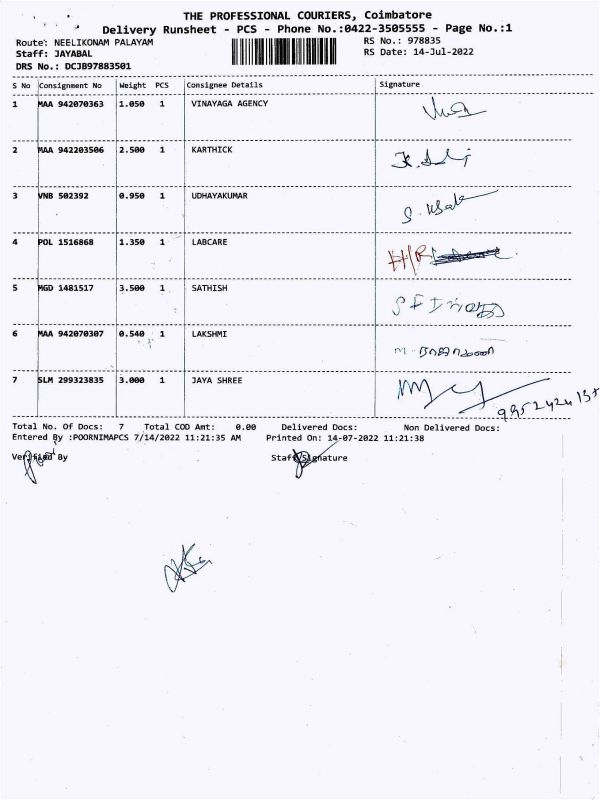 THE PROFESSIONAL COURIERS, Coimbatore
Delivery Runsheet - PCS - Phone No.:0422-3505555 - Page No.:1
Route: NEELIKONAM PALAYAM RS No.: 978835
Staff: JAYABAL RS Date: 14-Jul-2022
DRS No.: DCJB97883501
S No Consignment No Weight PCS Consignee Details Signature
1 MAA 942070363 1.050 1 VINAYAGA AGENCY
2 MAA 942203506 2.500 1 KARTHICK
3 VNB 502392 0.950 1 UDHAYAKUMAR
4 POL 1516868 1.350 1 LABCARE H/R
5 MGD 1481517 3.500 1 SATHISH
6 MAA 942070307 0.540 1 LAKSHMI
7 SLM 299323835 3.000 1 JAYA SHREE
Total No. Of Docs: 7 Total COD Amt: 0.00 Delivered Docs: Non Delivered Docs:
Entered By :POORNIMAPCS 7/14/2022 11:21:35 AM Printed On: 14-07-2022 11:21:38
Verified By Staff Signature